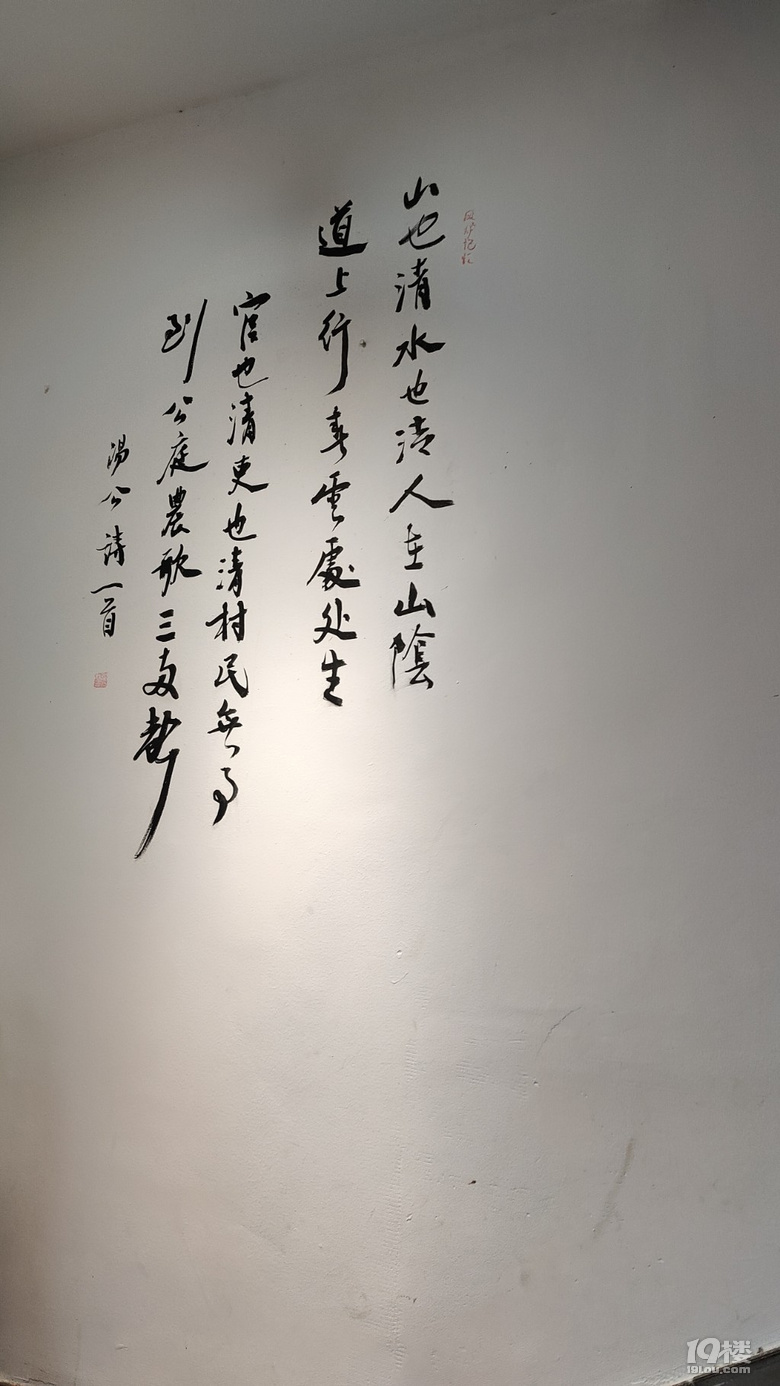 山也清水也清人在山陰
道上行春雲處处生
官也清吏也清村民無事
到公庭農歌三两聲
湯公詩一首
19楼
19lou.com